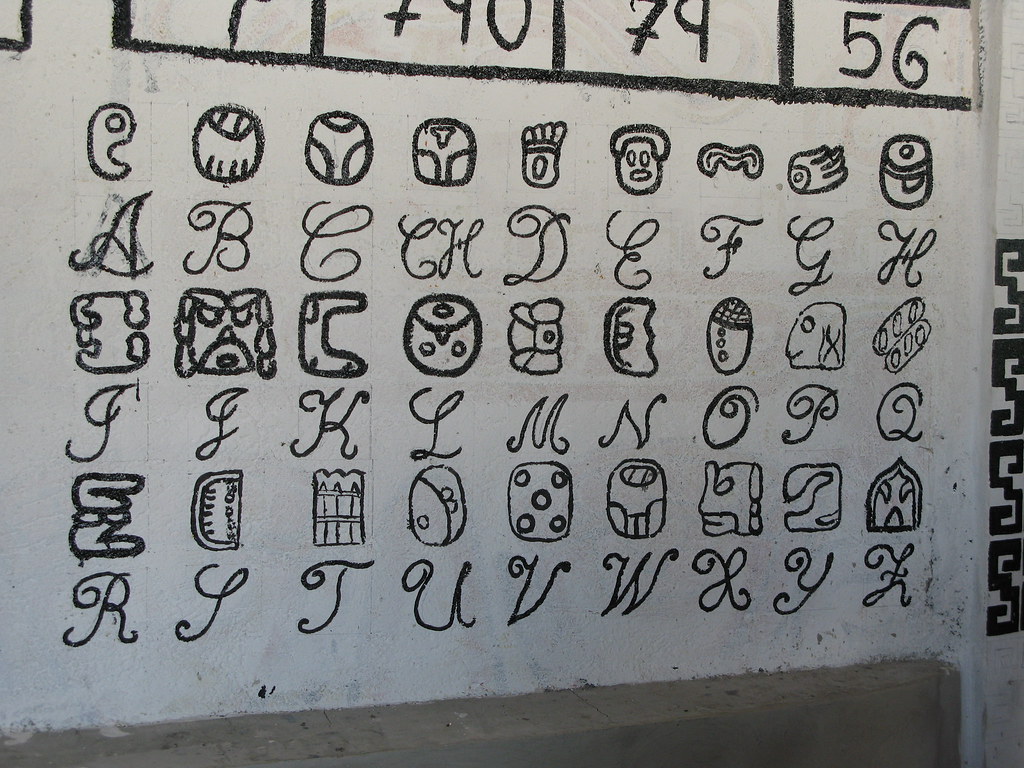 740 74 56
A B C CH D E F G H
I J K L M N O P Q
R S T U V W X Y Z